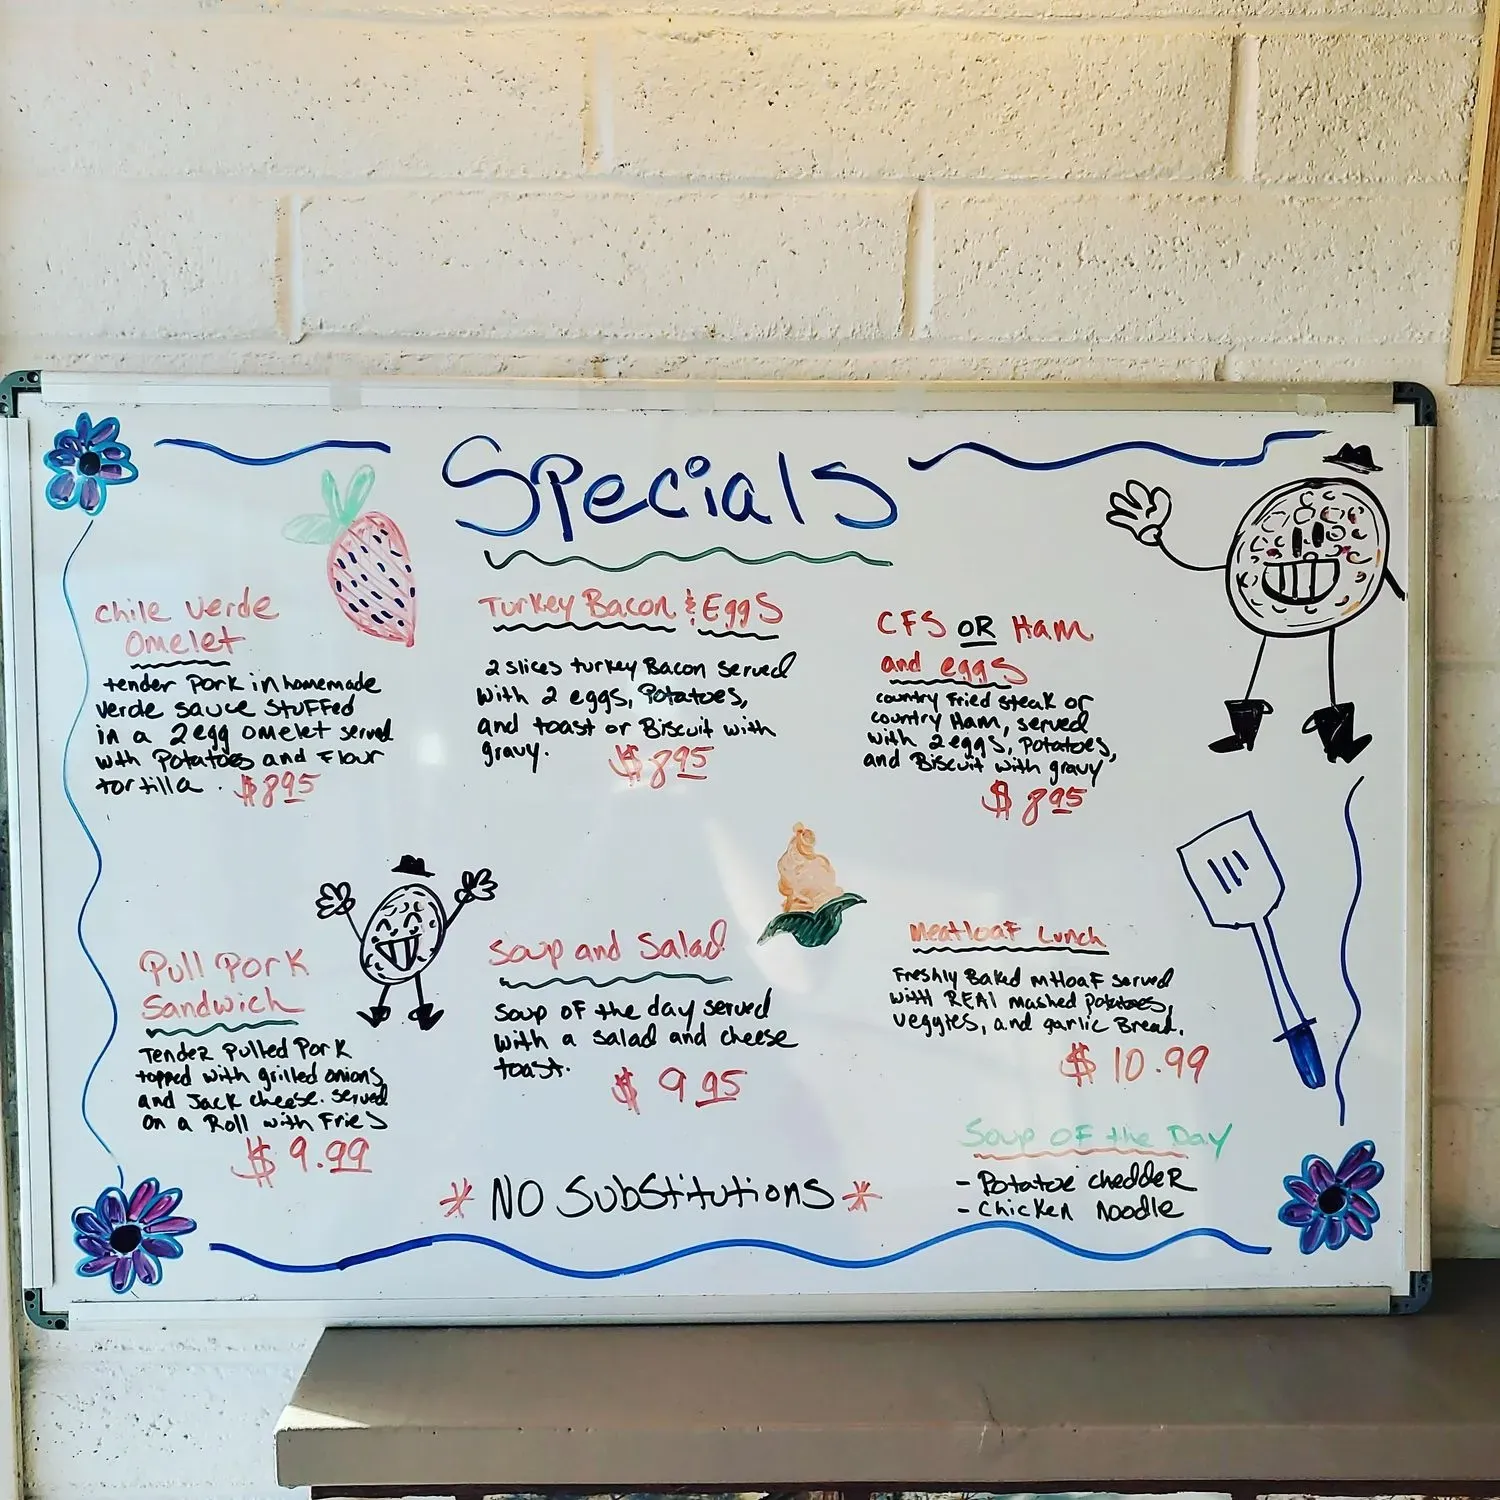 Specials
Chile Verde
Omelet
tender Pork in homemade
verde sauce stuffed
in a 2 egg omelet served
with Potatoes and Flour
tortilla. $8 95
Turkey Bacon & Eggs
2 slices turkey Bacon served
with 2 eggs, Potatoes,
and toast or Biscuit with
gravy. $8 95
CFS OR Ham
and eggs
country Fried steak or
country Ham, served
with 2 eggs, Potatoes,
and Biscuit with gravy
$8 95
Pull Pork
Sandwich
Tender Pulled Pork
topped with grilled onions
and Jack cheese. served
on a Roll with Fries
$9.99
Soup and Salad
Soup of the day served
with a salad and cheese
toast.
$9 95
Meatloaf Lunch
Freshly Baked mtloaf served
with REAl mashed potatoes,
veggies, and garlic Bread.
$10.99
Soup of the Day
- Potatoe chedder
- Chicken noodle
* NO Substitutions *